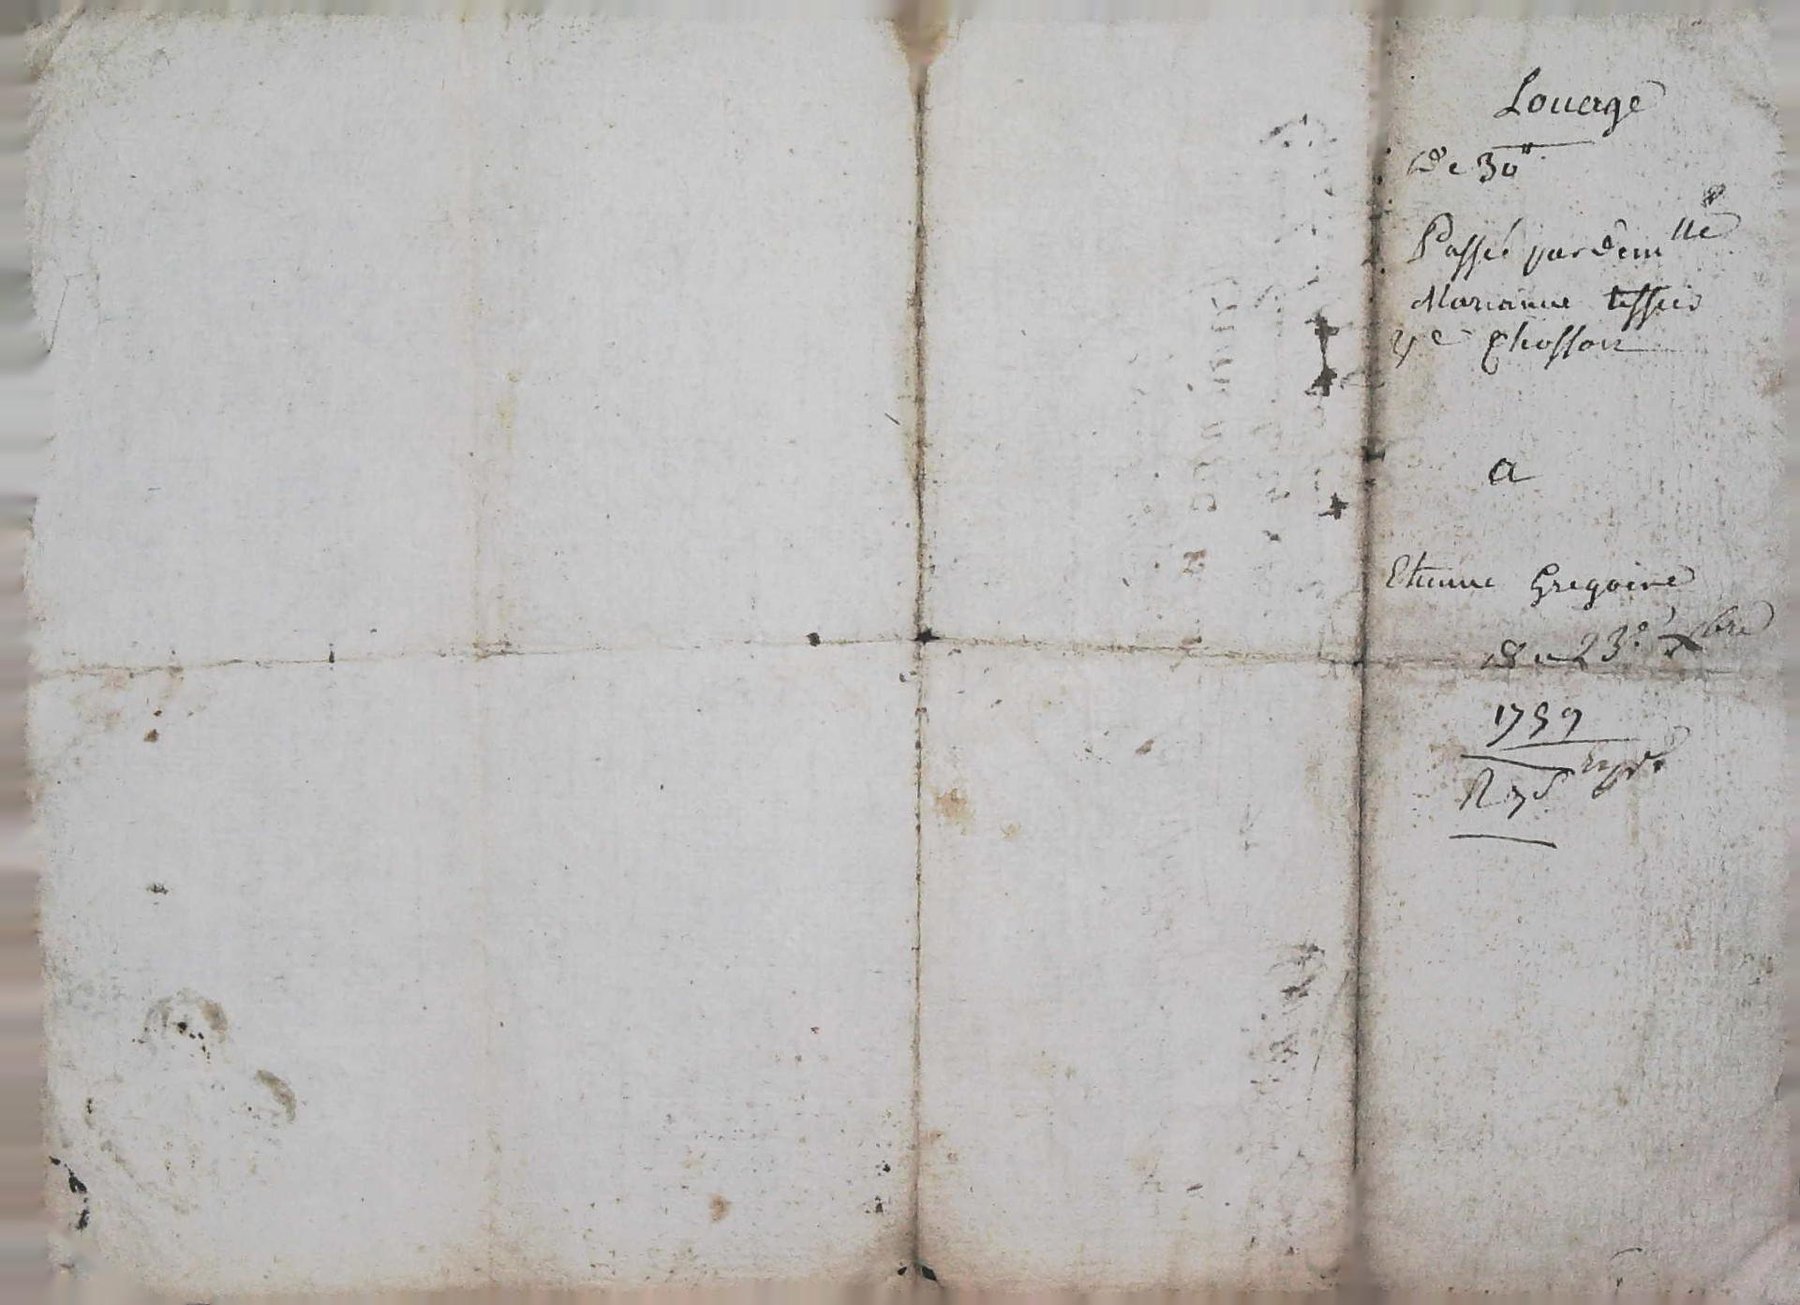 Louage
De 30ᴸᴸ
Passé par demlle
Marianne tessier
Ve Chosson
a
Etienne Gregoire
De 23e Xbre
1759
Expé